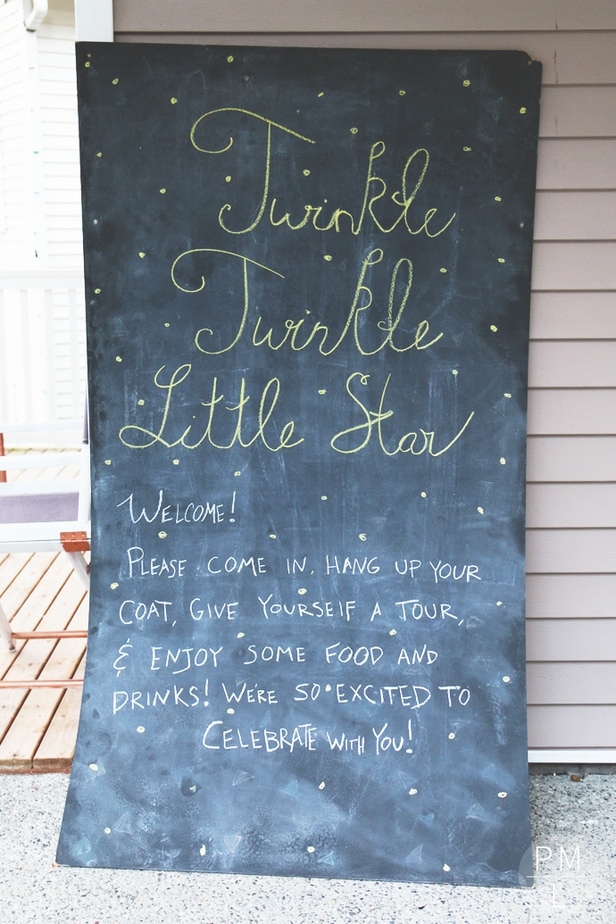 Twinkle
Twinkle
Little Star
WELCOME!
PLEASE COME IN, HANG UP YOUR
COAT, GIVE YOURSELF A TOUR,
& ENJOY SOME FOOD AND
DRINKS! WE'RE SO EXCITED TO
CELEBRATE WITH YOU!
PM
L